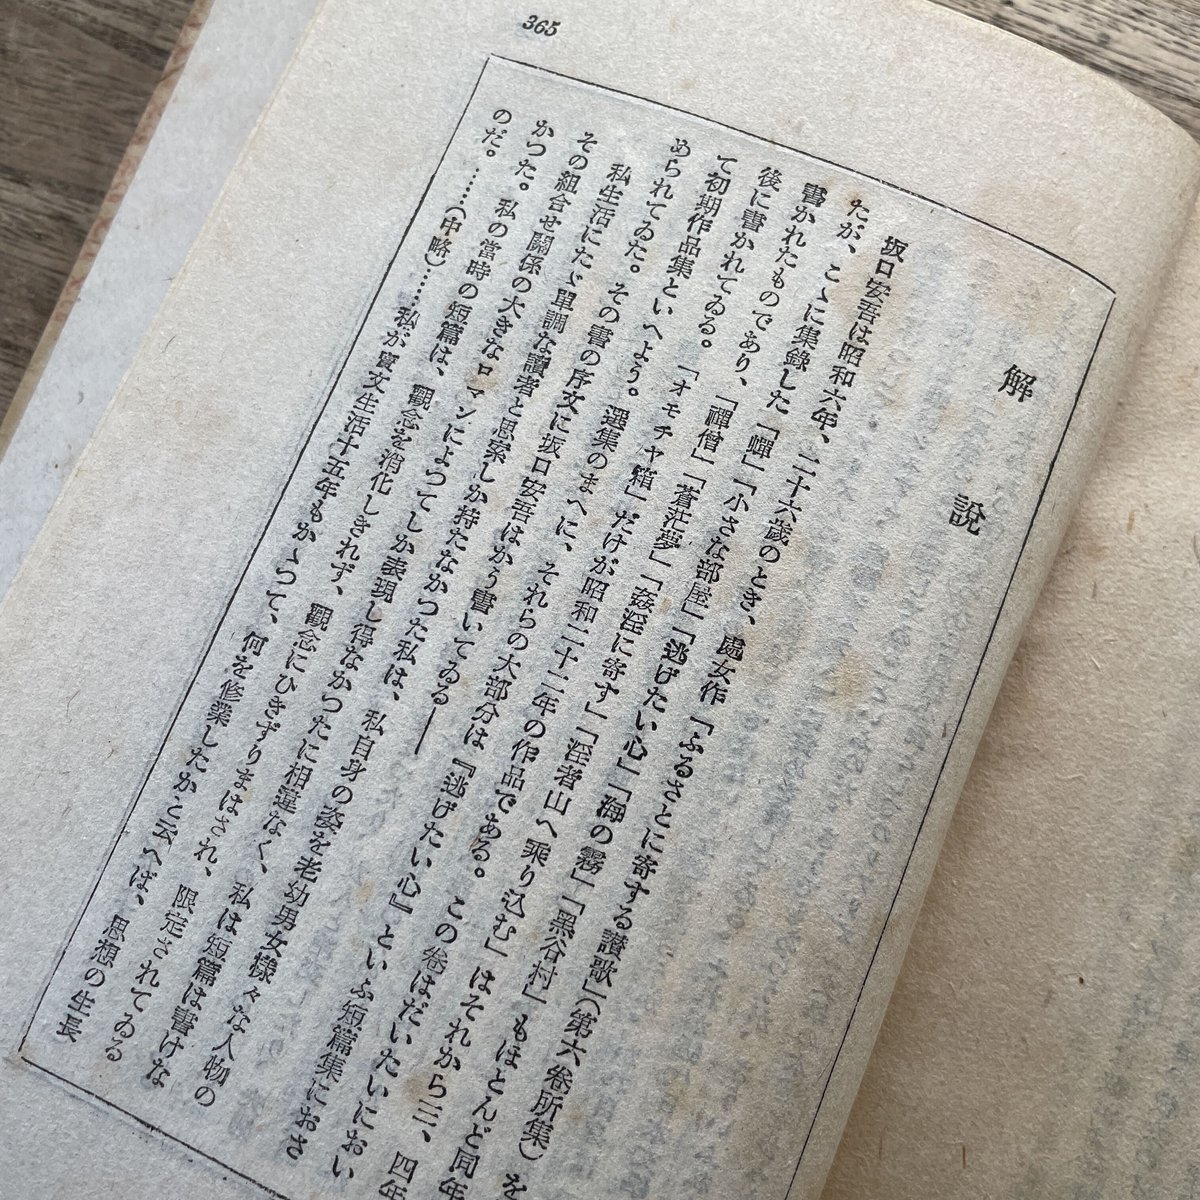 365
解說
坂口安吾は昭和六年、二十六歲のとき、處女作「ふるさとに寄する讃歌」(第六卷所集)を
たが、こゝに集錄した「蟬」「小さな部屋」「逃げたい心」「海の霧」「黑谷村」もほとんど同年
書かれたものであり、「禪僧」「蒼茫夢」「姦淫に寄す」「淫者山へ乘り込む」はそれから三、四年
後に書かれてゐる。「オモチヤ箱」だけが昭和二十二年の作品である。この卷はだいたいにおい
て初期作品集といへよう。選集のまへに、それらの大部分は『逃げたい心』といふ短篇集におさ
められてゐた。その書の序文に坂口安吾はかう書いてゐる——
私生活にたゞ單調な讀者と思案しか持たなかつた私は、私自身の姿を老幼男女樣々な人物の
その組合せ關係の大きなロマンによつてしか表現し得なかつたに相違なく、私は短篇は書けな
かつた。私の當時の短篇は、觀念を消化しきれず、觀念にひきずりまはされ、限定されてゐる
のだ。……(中略)……私が賣文生活十五年もかゝつて、何を修業したかと云へば、思想の生長